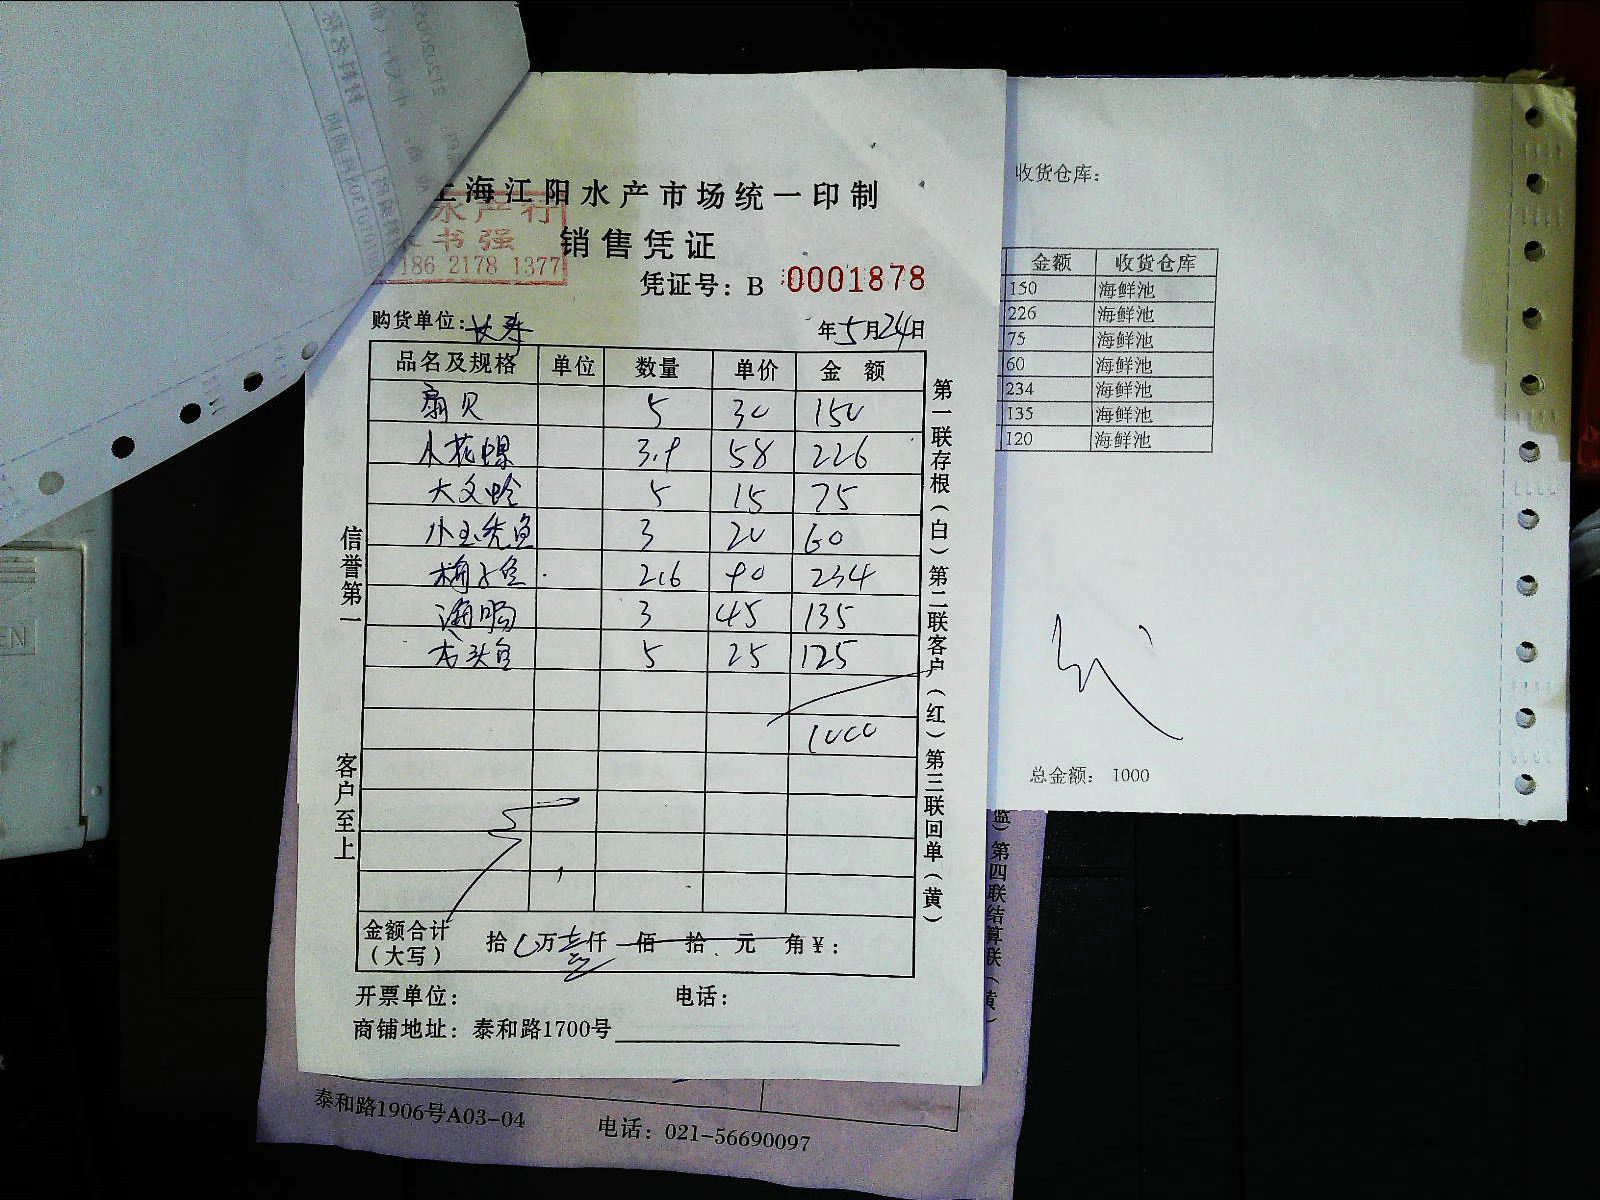 上海江阳水产市场统一印制
水产行
书强
186 2178 1377
销售凭证
凭证号：B 0001878
购货单位：长寿
年5月24日
品名及规格 单位 数量 单价 金额
扇贝 5 30 150
小花螺 3.9 58 226
大文蛤 5 15 75
小玉秃鱼 3 20 60
梅子鱼 2.6 90 234
海肠 3 45 135
龙头鱼 5 25 125
1000
金额合计（大写） 拾 万 壹仟 佰 拾 元 角 ¥：
开票单位： 电话：
商铺地址：泰和路1700号
信誉第一
客户至上
第一联存根（白）第二联客户（红）第三联回单（黄）
收货仓库：
金额 收货仓库
150 海鲜池
226 海鲜池
75 海鲜池
60 海鲜池
234 海鲜池
135 海鲜池
120 海鲜池
总金额： 1000
蓝）第四联结算联（黄）
泰和路1906号A03-04 电话：021-56690097